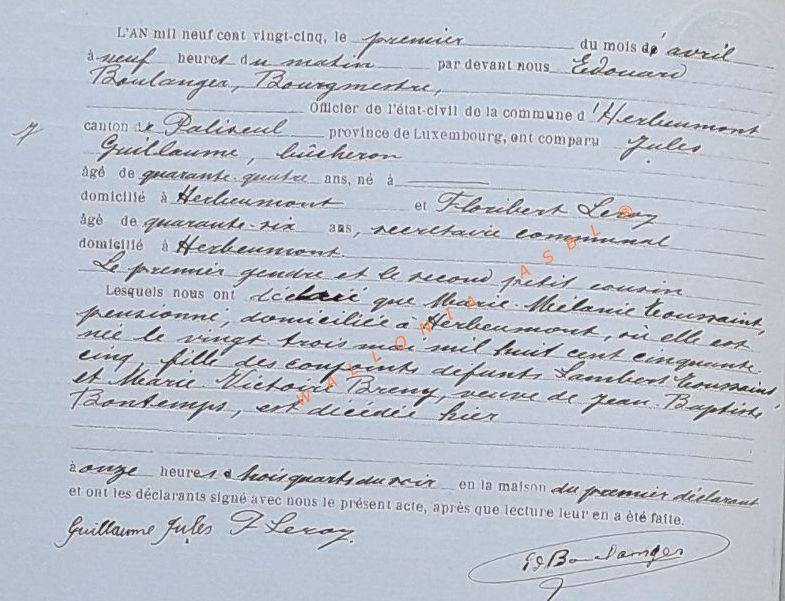 L'AN mil neuf cent vingt-cinq, le premier du mois d' avril
à neuf heures du matin par devant nous Edouard
Boulanger, Bourgmestre,
Officier de l'état-civil de la commune d'Herbeumont
7 canton de Paliseul province de Luxembourg, ont comparu Jules
Guillaume, bûcheron
âgé de quarante-quatre ans, né à
domicilié à Herbeumont et Floribert Leroy
âgé de quarante-six ans, secrétaire communal
domicilié à Herbeumont.
Le premier gendre et le second petit cousin
Lesquels nous ont déclaré que Marie-Mélanie Toussaint,
pensionné, domiciliée à Herbeumont, où elle est
née le vingt trois mai mil huit cent cinquante-
cinq, fille des conjoints défunts Lambert Toussaint
et Marie-Victoire Breny, veuve de Jean-Baptiste
Bontemps, est décédée hier
à onze heures & trois quarts du soir en la maison du premier déclarant
et ont les déclarants signé avec nous le présent acte, après que lecture leur en a été faite.
Guillaume Jules F Leroy.
Ed Boulanger
WALLONIA ASBL ©